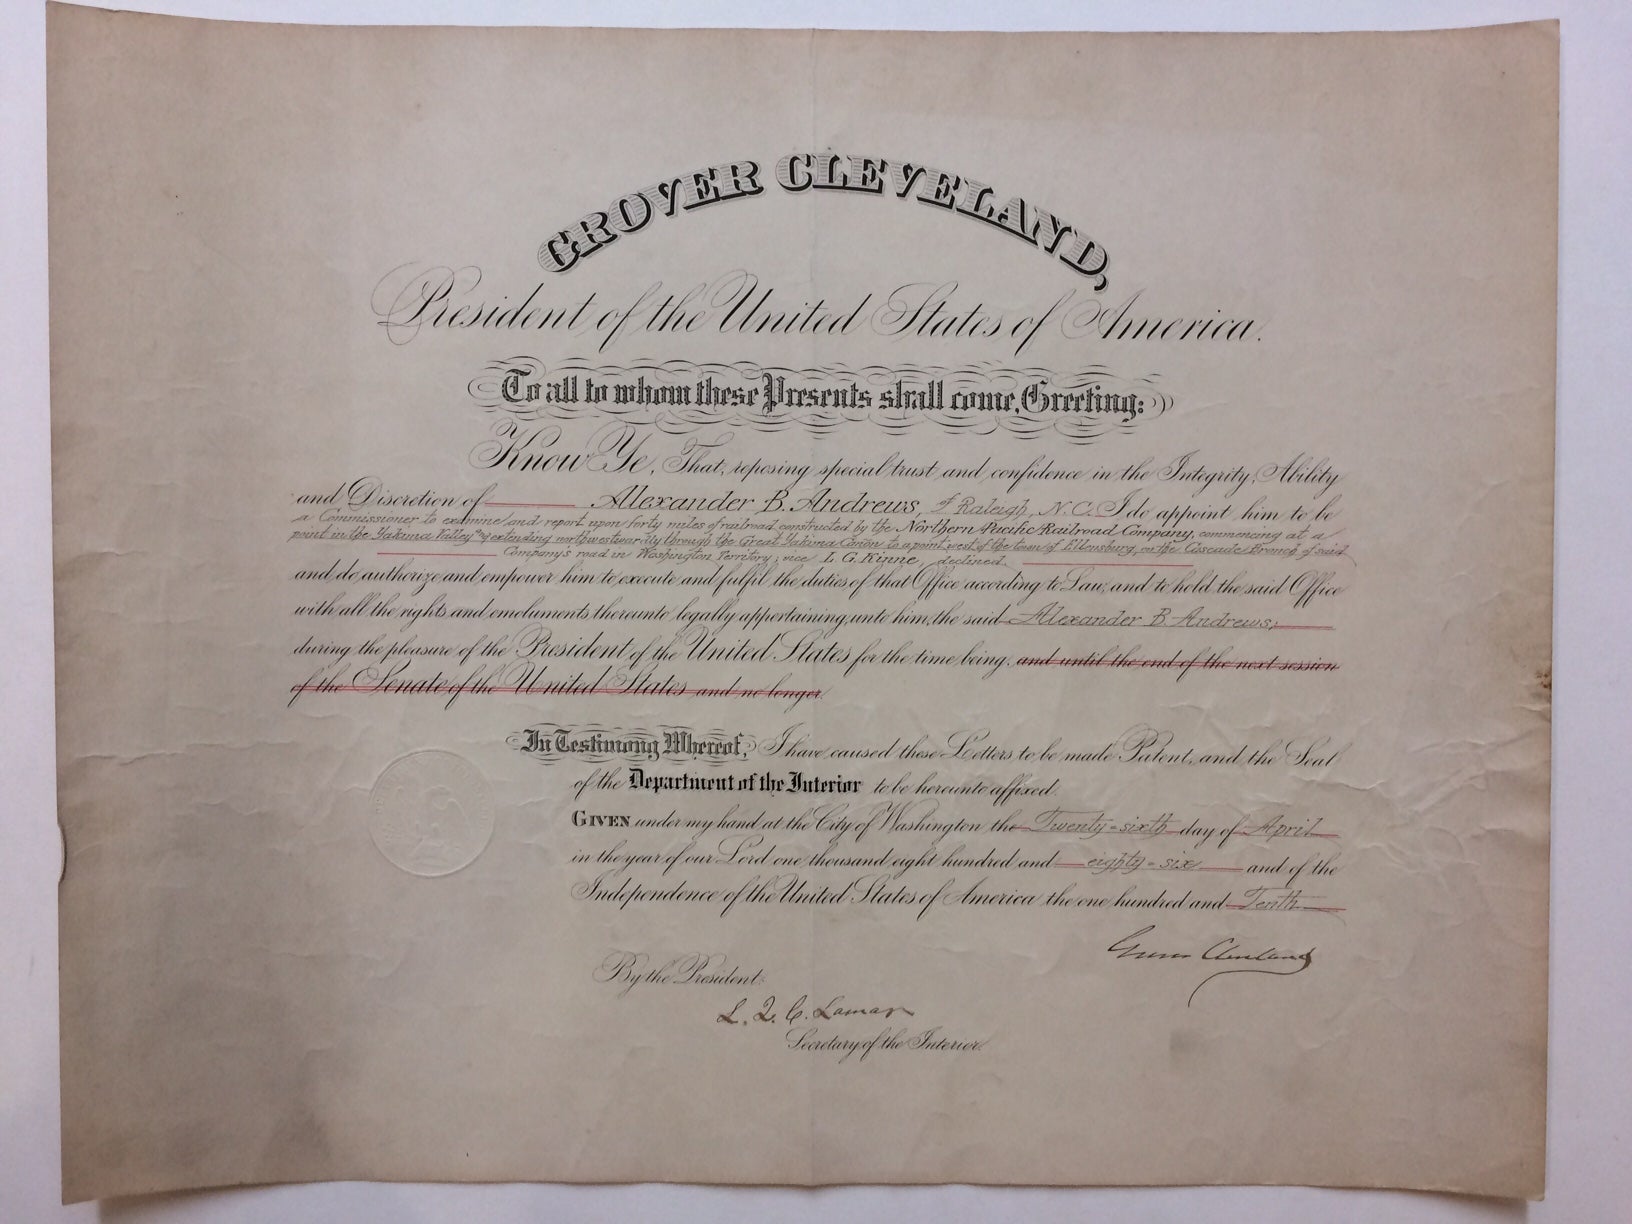 GROVER CLEVELAND,
President of the United States of America.
To all to whom these Presents shall come, Greeting:
Know Ye, That, reposing special trust and confidence in the Integrity, Ability
and Discretion of Alexander B. Andrews, of Raleigh, N.C. I do appoint him to be
a Commissioner to examine and report upon forty miles of railroad constructed by the Northern Pacific Railroad Company, commencing at a
point in the Yakima Valley extending northwestwardly through the Great Yakima Canon to a point west of the town of Ellensburg, on the Cascade Branch of said
Company's road in Washington Territory; vice L. G. Kinne, declined
and do authorize and empower him to execute and fulfil the duties of that Office according to Law; and to hold the said Office
with all the rights and emoluments thereunto legally appertaining unto him, the said Alexander B. Andrews,
during the pleasure of the President of the United States for the time being. and until the end of the next session
of the Senate of the United States and no longer.
In Testimony Whereof, I have caused these Letters to be made Patent, and the Seal
of the Department of the Interior to be hereunto affixed.
GIVEN under my hand at the City of Washington the Twenty-sixth day of April
in the year of our Lord one thousand eight hundred and eighty-six and of the
Independence of the United States of America the one hundred and Tenth
Grover Cleveland
By the President:
L. Q. C. Lamar
Secretary of the Interior.